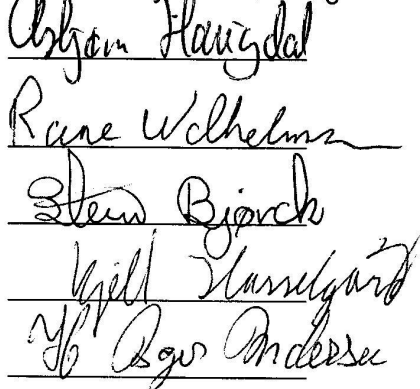 Asbjørn Haugdal
Rune Wilhelms
Stein Bjørck
Kjell Hasselgård
Asger Andersen